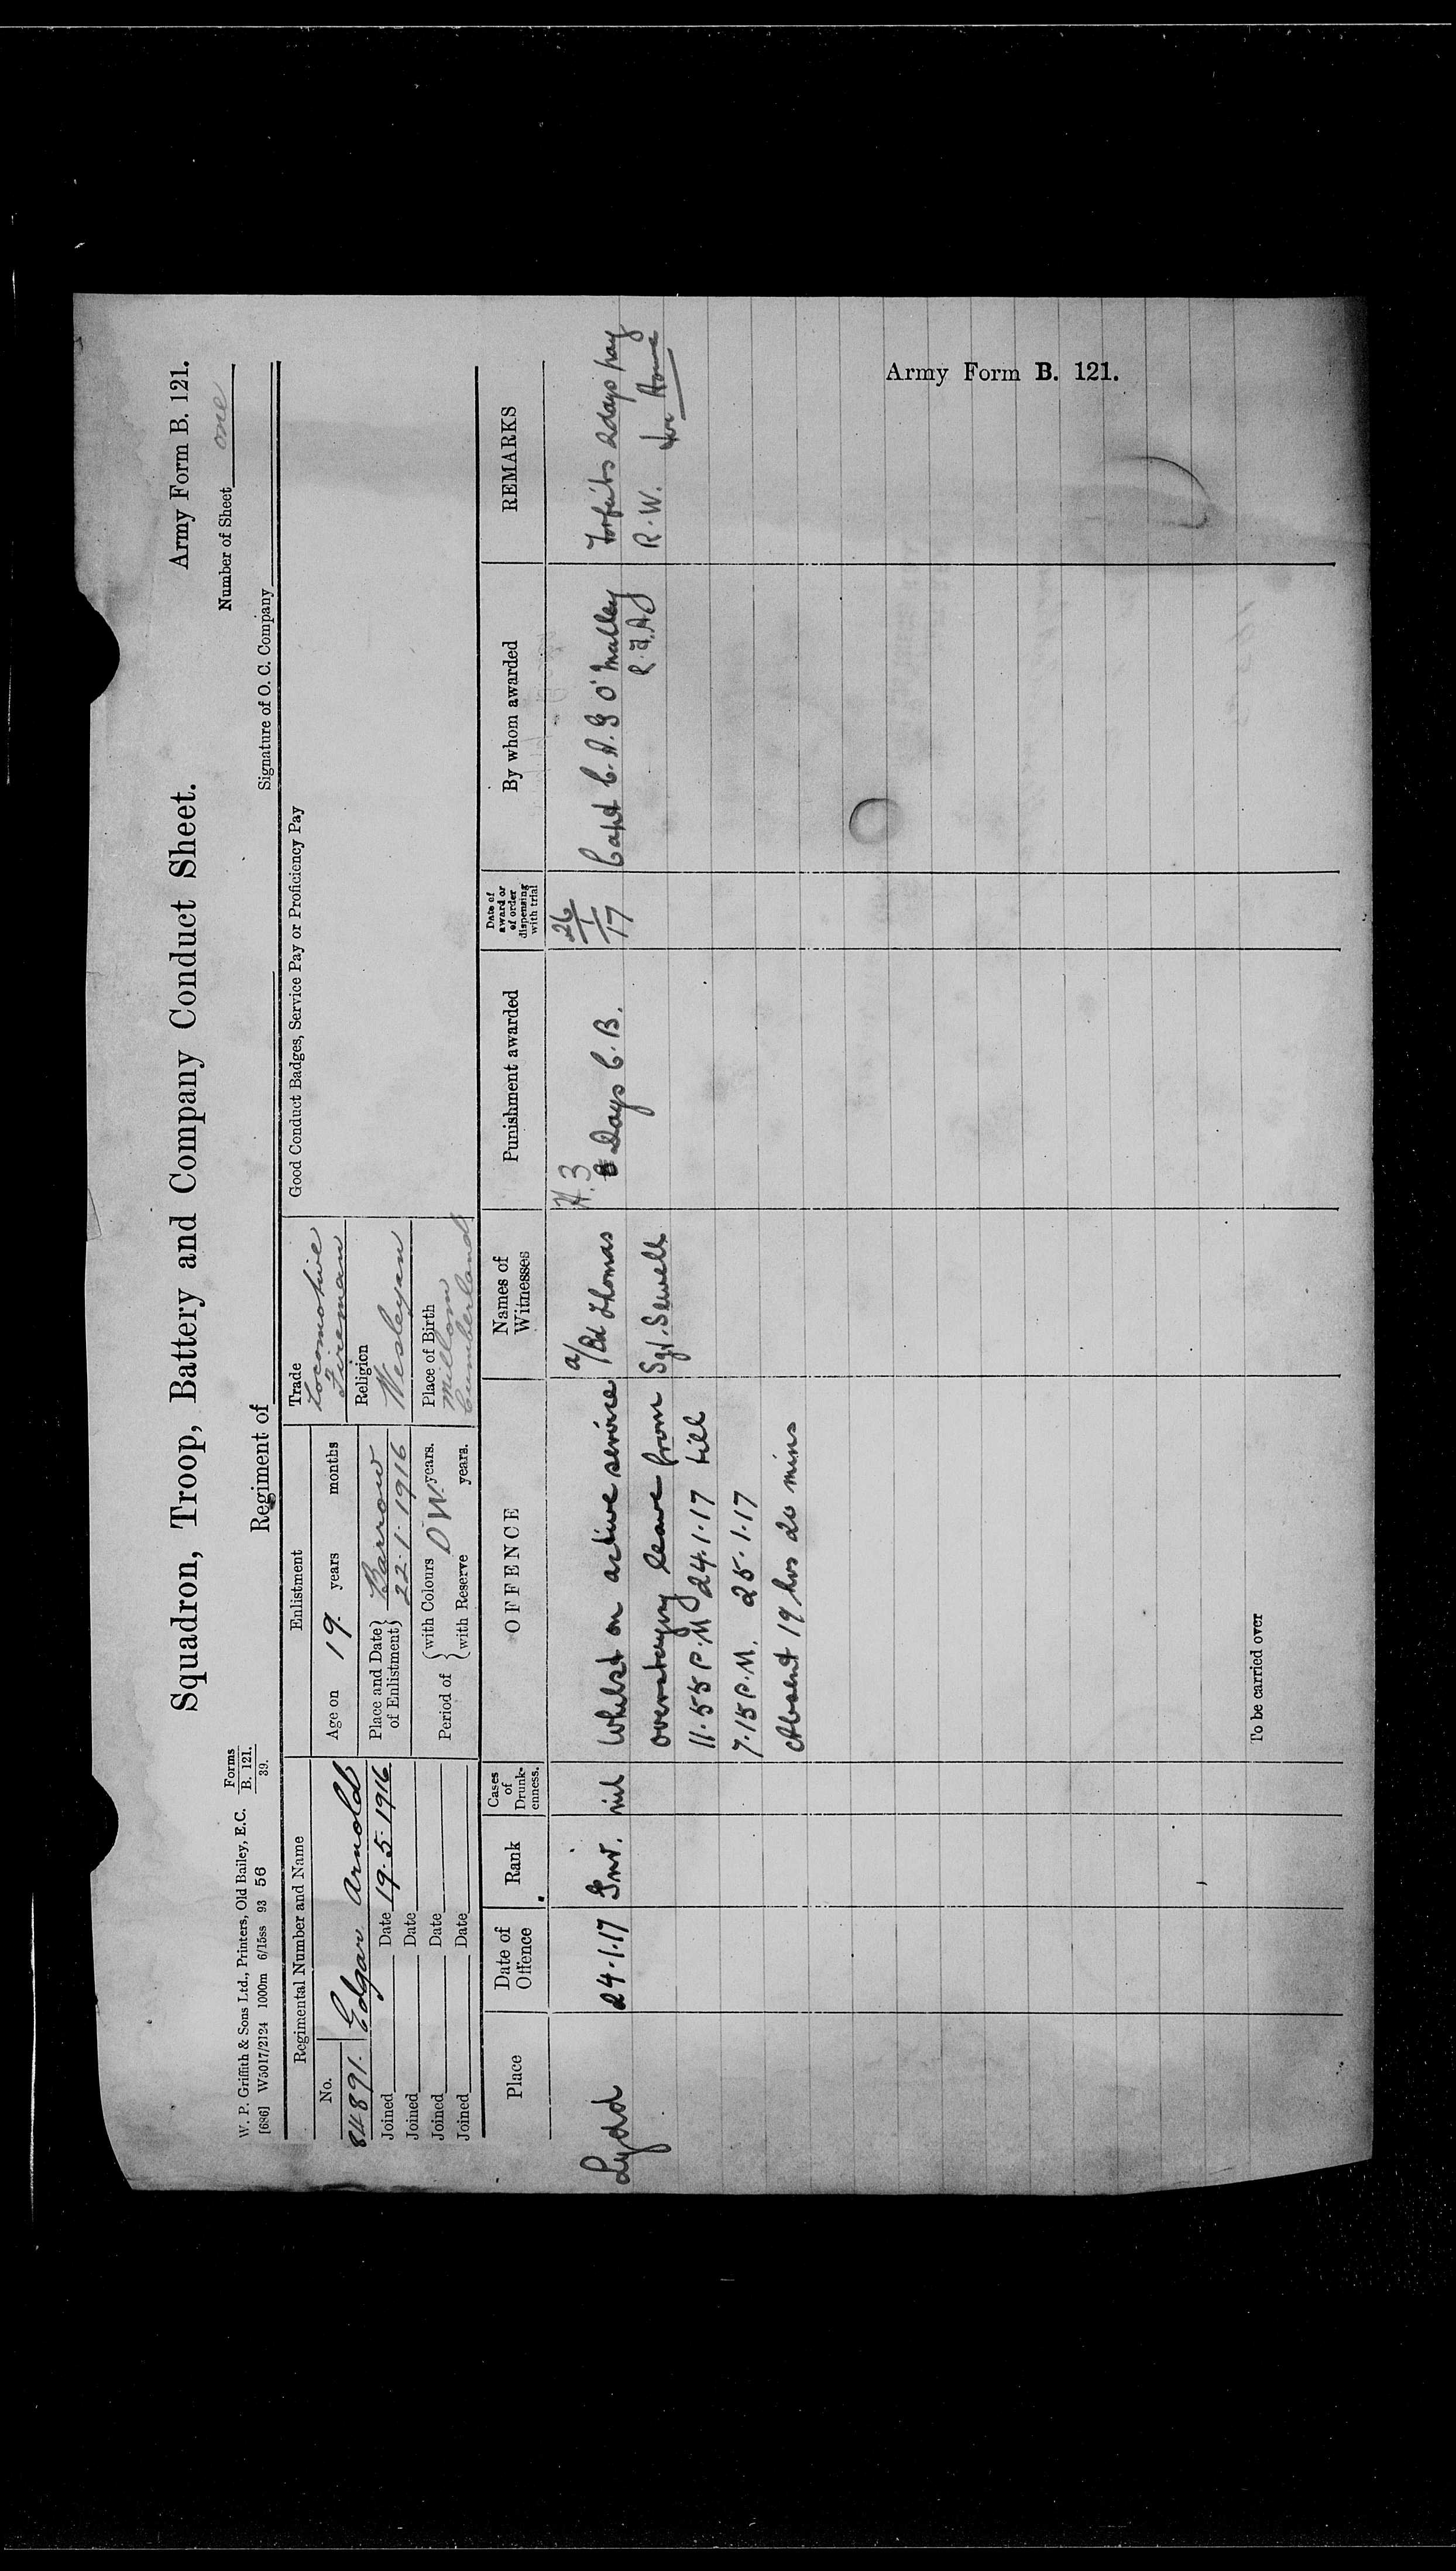 Squadron, Troop, Battery and Company Conduct Sheet.
Army Form B. 121.
W. P. Griffith & Sons Ltd., Printers, Old Bailey, E.C.
[686] W5017/2124 1000m 6/15ss 93 56
Forms
B. 121.
39.
Number of Sheet one
Regiment of
Signature of O. C. Company
Regimental Number and Name
No.
84891. Edgar Arnold
Joined Date 19.5.1916
Joined Date
Joined Date
Joined Date
Enlistment
Age on 19 years months
Place and Date of Enlistment Barrow
22.1.1916
Period of with Colours D W. years.
with Reserve years.
Trade
Locomotive
Fireman
Religion
Wesleyan
Place of Birth
Millom
Cumberland
Good Conduct Badges, Service Pay or Proficiency Pay
Place
Date of Offence
Rank
Cases of Drunkenness.
OFFENCE
Names of Witnesses
Punishment awarded
Date of award or of order dispensing with trial
By whom awarded
REMARKS
Lydd
24.1.17
nil
Whilst on active service
overstaying leave from
11.55 P.M 24.1.17 till
7.15 P.M. 25.1.17
Absent 19 hrs 20 mins
a/Bd Thomas
Sgt. Sewell
3
Days C.B.
26/1/17
Capt C.A.G O'Malley
R.F.A.
Forfeits 2 days pay
R.W.
To be carried over
Army Form B. 121.